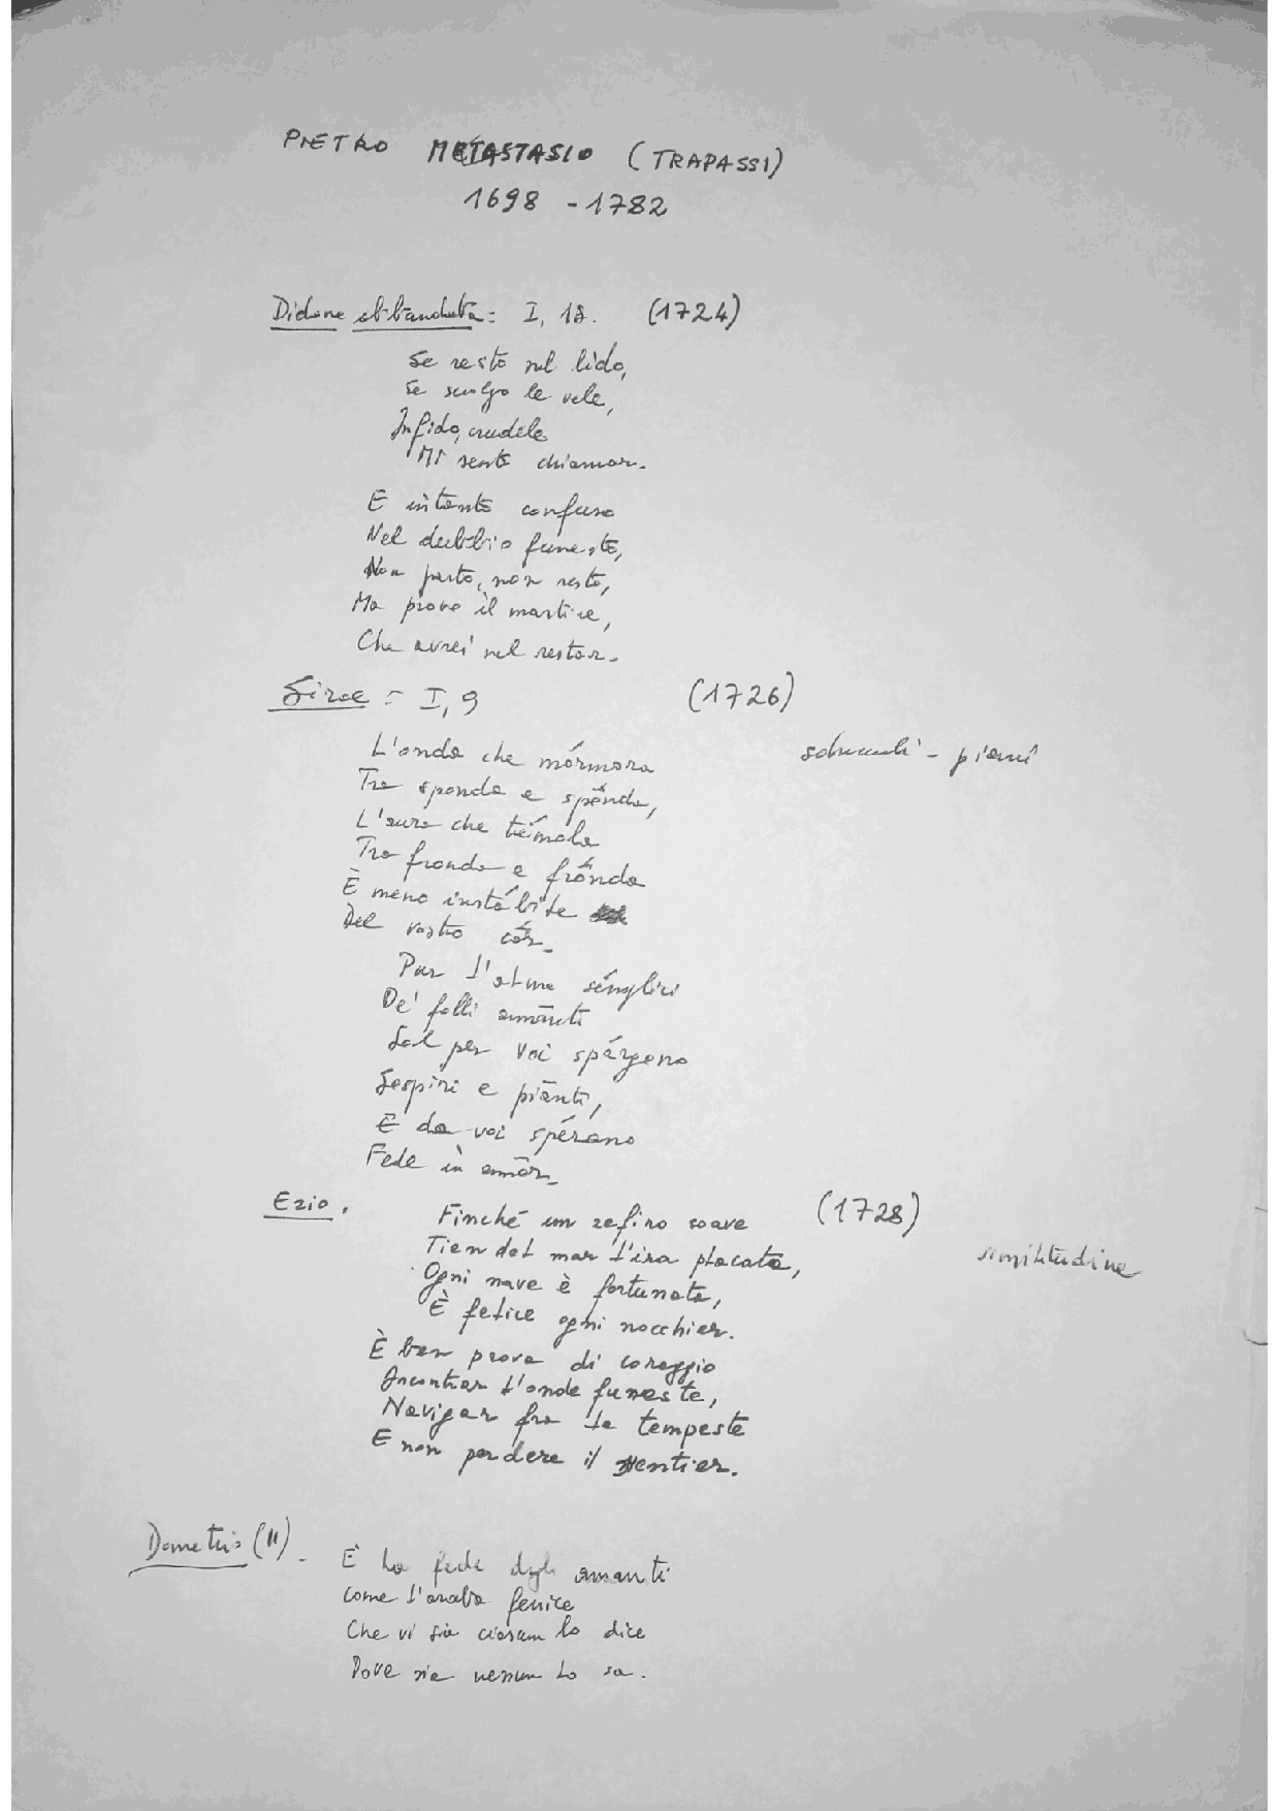 PIETRO METASTASIO (TRAPASSI)
1698 - 1782
Didone abbandonata: I, 18. (1724)
Se resto sul lido,
Se sciolgo le vele,
Infido, crudele
Mi sento chiamar.
E intanto confuso
Nel dubbio funesto,
Non parto, non resto,
Ma provo il martire,
Che avrei nel restar.
Siroe = I, 9 (1726)
L'onda che mórmora sdruccioli - piani
Tra sponda e spónda,
L'aura che trémola
Tra fronda e frónda
È meno instábile
Del vostro cór.
Pur l'alme sémplici
De' folli amánti
Sol per voi spárgono
Sospiri e piánti,
E da voi spérano
Fede in amór.
Ezio. Finché un zefiro soave (1728)
Tien del mar l'ira placata, similitudine
Ogni nave è fortunata,
È felice ogni nocchier.
È ben prova di coraggio
Incontrar l'onde funeste,
Navigar fra le tempeste
E non perdere il sentier.
Demetrio (II). È la fede degli amanti
Come l'araba fenice
Che vi sia ciascun lo dice
Dove sia nessun lo sa.